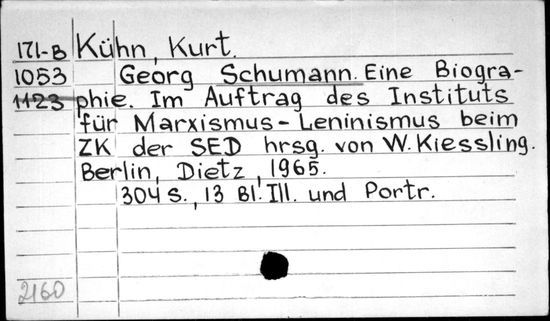 171-B Kühn, Kurt.
1053 Georg Schumann. Eine Biogra-
1123 phie. Im Auftrag des Instituts
für Marxismus-Leninismus beim
ZK der SED hrsg. von W. Kiessling.
Berlin, Dietz, 1965.
304 S., 13 Bl. Ill. und Portr.
2160